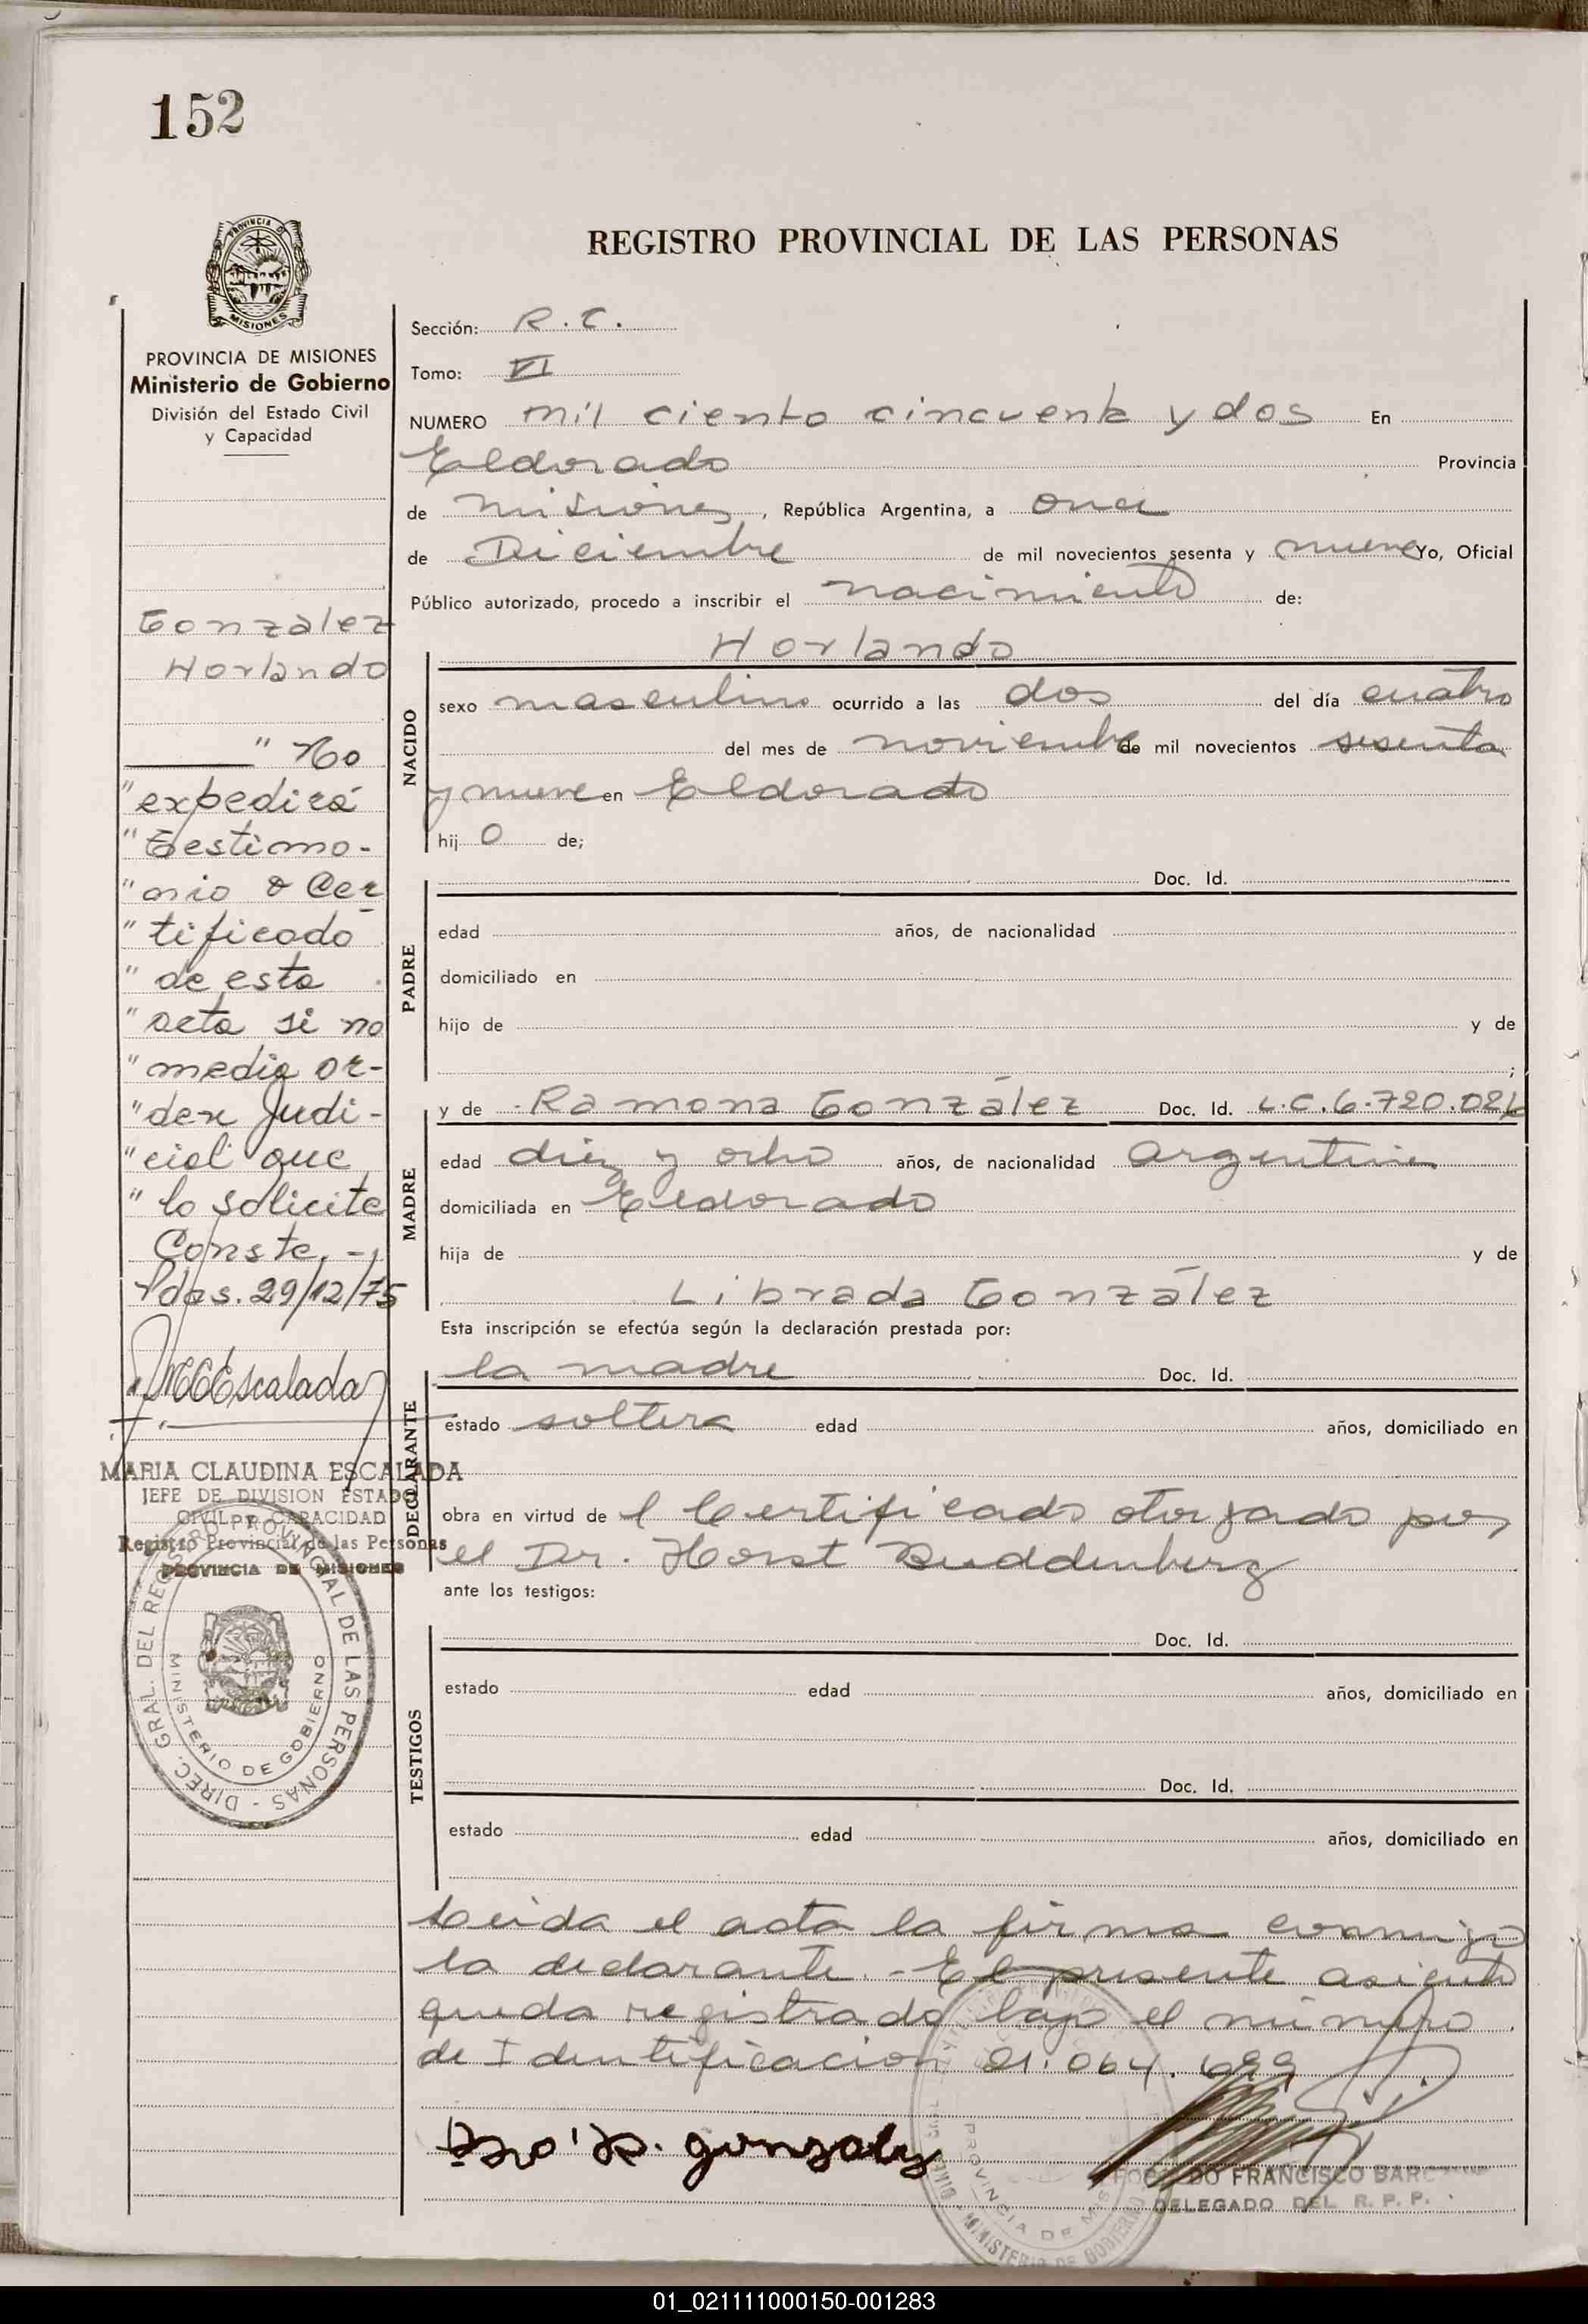 152
PROVINCIA DE
MISIONES
REGISTRO PROVINCIAL DE LAS PERSONAS
PROVINCIA DE MISIONES
Ministerio de Gobierno
División del Estado Civil
y Capacidad
González
Horlando
" No
"expedirá
"Testimo-
"nio o Cer
"tificado
"de esta
"acta si no
"media or-
"den Judi-
"cial que
"lo solicite
Conste.-
Pdas. 29/12/75
MCEscalada
MARIA CLAUDINA ESCALADA
JEFE DE DIVISION ESTADO
CIVIL Y CAPACIDAD
Registro Provincial de las Personas
PROVINCIA DE MISIONES
DIREC. GRAL. DEL REGISTRO PROVINCIAL DE LAS PERSONAS -
MINISTERIO DE GOBIERNO
Sección: R.C.
Tomo: VI
NUMERO mil ciento cincuenta y dos En
Eldorado Provincia
de Misiones, República Argentina, a once
de Diciembre de mil novecientos sesenta y nueve Yo, Oficial
Público autorizado, procedo a inscribir el nacimiento de:
Horlando
NACIDO
sexo masculino ocurrido a las dos del día cuatro
del mes de noviembre de mil novecientos sesenta
y nueve en Eldorado
hijo de;
PADRE
Doc. Id.
edad años, de nacionalidad
domiciliado en
hijo de y de
;
MADRE
y de Ramona González Doc. Id. L.C.6.720.026
edad diez y ocho años, de nacionalidad Argentina
domiciliada en Eldorado
hija de y de
Librada González
Esta inscripción se efectúa según la declaración prestada por:
DECLARANTE
la madre Doc. Id.
estado soltera edad años, domiciliado en
obra en virtud de l Certificado otorgado por
el Dr. Horst Buddenberg
ante los testigos:
TESTIGOS
Doc. Id.
estado edad años, domiciliado en
Doc. Id.
estado edad años, domiciliado en
Leida el acta la firma conmigo
la declarante.- El presente asiento
queda registrado bajo el número
de Identificacion 21.064.699
gonzalez
PROVINCIA DE MIS
MINISTERIO DE GOBIERNO
DO FRANCISCO
DELEGADO DEL R. P. P.
01_021111000150-001283